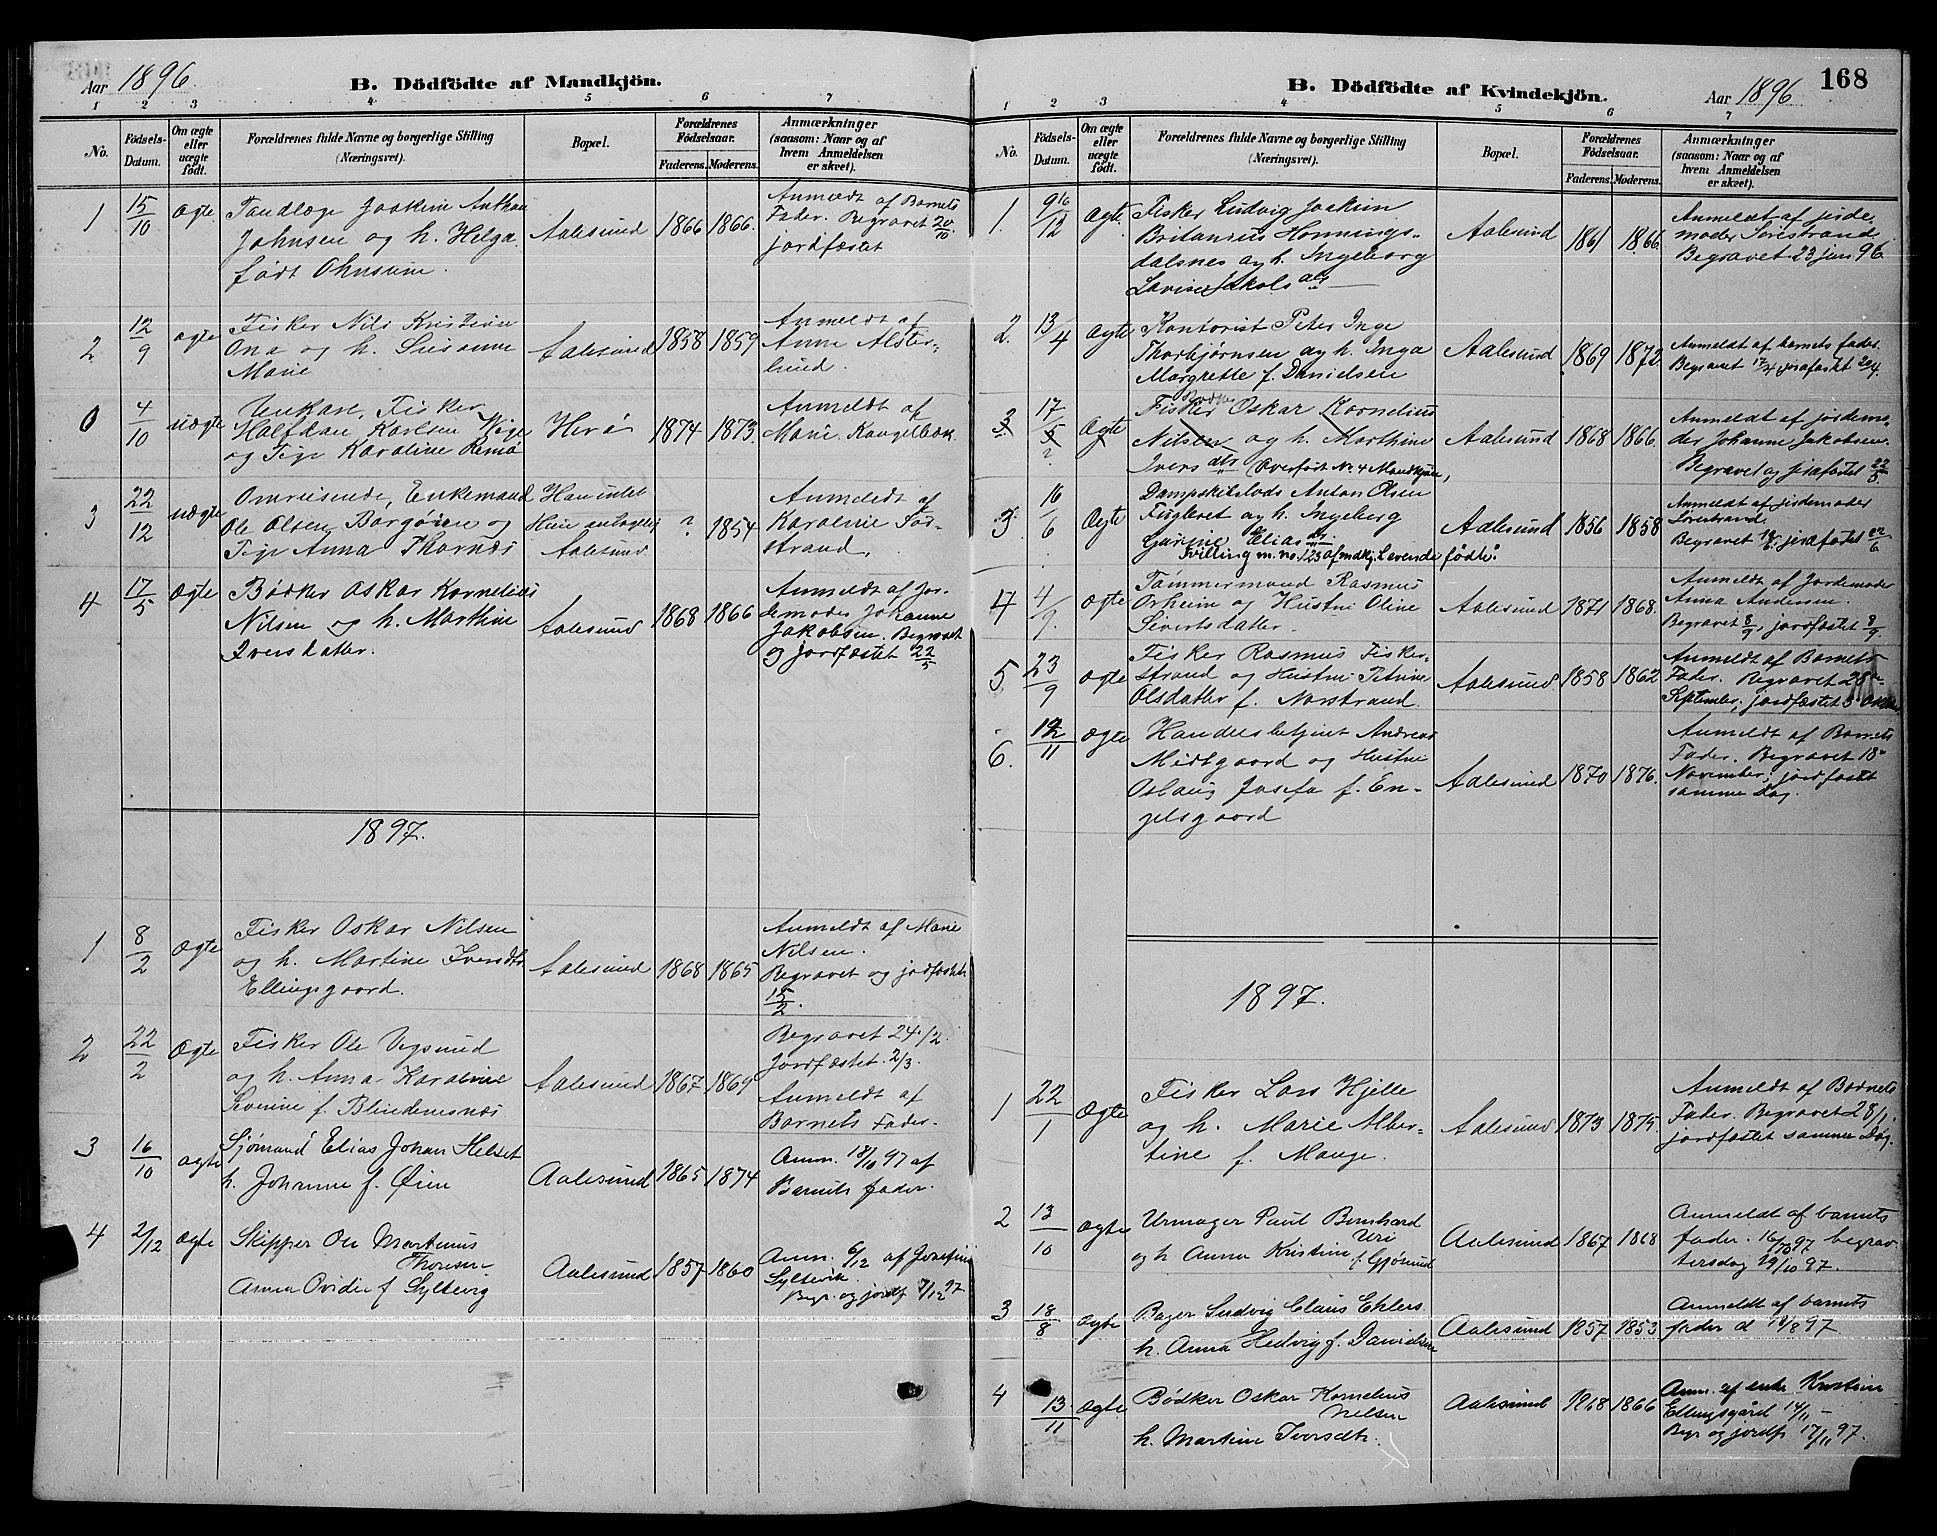 Aar 1896. B. Dödfödte af Mandkjön.
1 2 3 4 5 6 7
No.
Födsels-
Datum.
Om ægte
eller
uægte
født.
Forældrenes fulde Navne og borgerlige Stilling
(Næringsvei).
Bopæl.
Forældrenes
Födselsaar.
Faderens. Moderens.
Anmærkninger
(saasom: Naar og af
hvem Anmeldelsen
er skeet).
1 15/10 Ægte
Tandlæge Joakim Anthon
Johnsen og h. Helga
født
Aalesund 1866 1866.
Anmeldt af Barnets
Fader. Begravet 20/10.
jordfæstet
2 12/9 ægte
Fisker Nils Kristian
Ona og h. Susanne
Marie
Aalesund 1858 1859
Anmeldt af
Anne
0 4/10 uægte
Ungkarl, Fisker
Halfdan Karlsen
og Pige Karoline Remø
Herø 1874 1873
Anmeldt af
Marie
3 22/12 uægte
Omreisende, Enkemand
Ole Olsen Borgøien og
Pige Anna Thornæs
Han intet
Hun antagelig
Aalesund
? 1854
Anmeldt af
Karoline
strand.
4 17/5 Ægte
Bødker Oskar Kornelius
Nilsen og h. Marthine
Iversdatter.
Aalesund 1868 1866
Anmeldt af Jor-
demoder Johanne
Jakobsen. Begravet
og jordfæstet 22/5
1897.
1 8/2 Ægte
Fisker Oskar Nilsen
og h. Martine Iversdtr
Ellingsgaard.
Aalesund 1868 1865
Anmeldt af Marie
Nilsen.
Begravet og jordfæstet
15/2.
2 22/2 Ægte
Fisker Ole Vegsund
og h. Anna Karoline
Severine f. Blindemsnæs
Aalesund 1867 1869
Begravet 24/2.
Jordfæstet 2/3.
Anmeldt af
Barnets Fader.
3 16/10 ægte
Sjømand Elias Johan Helset
h. Johanne f. Øien
Aalesund 1865 1874
Anm. 18/10 97 af
Barnets fader.
4 2/12 ægte
Skipper Ole Martinus
Thoresen
Anna Ovidie f Syltevig
Aalesund 1857 1860
Anm. 6/12 af Josefine
Syltevik
Begr. og jordf 7/12 97.
B. Dödfödte af Kvindekjön. Aar 1896 168
1 2 3 4 5 6 7
No.
Födsels-
Datum.
Om ægte
eller
uægte
født.
Forældrenes fulde Navne og borgerlige Stilling
(Næringsvei).
Bopæl.
Forældrenes
Födselsaar.
Faderens. Moderens.
Anmærkninger
(saasom: Naar og af
hvem Anmeldelsen
er skeet).
1. Ægte
Fisker Ludvig Joakim
Britanius Honnings-
dalsnes og h. Ingeborg
Lovise Jakobsdtr
Aalesund 1861 1866.
Anmeldt af jorde-
moder Sørestrand
Begravet 23 jan 96
2. 13/4 Ægte
Kontorist Peter Inge
Thorbjørnsen og h. Inga
Margrette f. Danielsen
Aalesund 1869 1872.
Anmeldt af barnets fader.
Begravet 17/4 jordfæstet 20/4.
3 17/5 Ægte
?
Bødker
Fisker Oskar Kornelius
Nilsen og h. Marthine
Iversdtr Overført No 4 Mandkjøn,
Aalesund 1868 1866.
Anmeldt af jordemo-
der Johanne Jakobsen.
Begravet og jordfæstet 22/5
3 16/6 Ægte
Dampskibslods Anton Olsen
Fugleret og h. Ingeberg
Gurine Eliasdtr
Tvilling m. no. 123 af mdkj. Levende fødte.
Aalesund 1856 1858
Anmeldt af jordemoder
Sørestrand
Begravet jordfæstet 22/6
4 4/9. ægte
Tømmermand Rasmus
Orheim og Hustru Oline
Sivertsdatter.
Aalesund 1871 1868.
Anmeldt af Jordemoder
Anna Andersen.
Begravet 8/9, jordfæstet 8/9.
5 23/9 ægte
Fisker Rasmus Fisker-
strand og Hustru Petrine
Olsdatter f. Norstrand.
Aalesund 1858 1862
Anmeldt af Barnets
Fader. Begravet 28de
September, jordfæstet
6. 12/11 ægte
Handelsbetjent Andreas
Midtgaard og Hustru
Oslaug Josefa f. En-
gelsgaard
Aalesund 1870 1876.
Anmeldt af Barnets
Fader. Begravet 18de
November; jordfæstet
samme Dag.
1897.
1 22/1 Ægte
Fisker Lars Hjelle
og h. Marie Alber-
tine f. Mauge.
Aalesund 1873 1875.
Anmeldt af Barnets
Fader. Begravet 28/1.
jordfæstet samme Dag.
2 13/10 ægte
Urmager Paul Bernhard
Uri
og h Anna Kristine f. Gjørund
Aalesund 1867 1868
Anmeldt af barnets
fader. 16/10 97 begrav
tirsdag 19/10 97.
3 18/8 ægte
Bager Ludvig Claus Ehlers
h. Anna Hedvig f. Danielsen
Aalesund 1857 1853
Anmeldt af barnets
fader d 19/8 97
4 13/11 Ægte
Bødker Oskar Kornelius
Nilsen
h. Martine Iversdtr.
Aalesund 1868 1866
Anm. af enke Kristine
Ellingsgård 14/11 -
Begr og jordf 17/11 97.